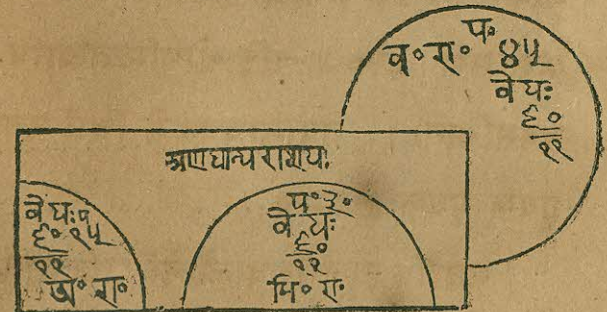 व॰ रा॰ प॰
४५
वेधः
६०
११
अणधान्यराशयः
वेधः प
६० १५
११
अं॰ रा॰
प॰ ३०
वेधः
६०
११
भि॰ रा॰